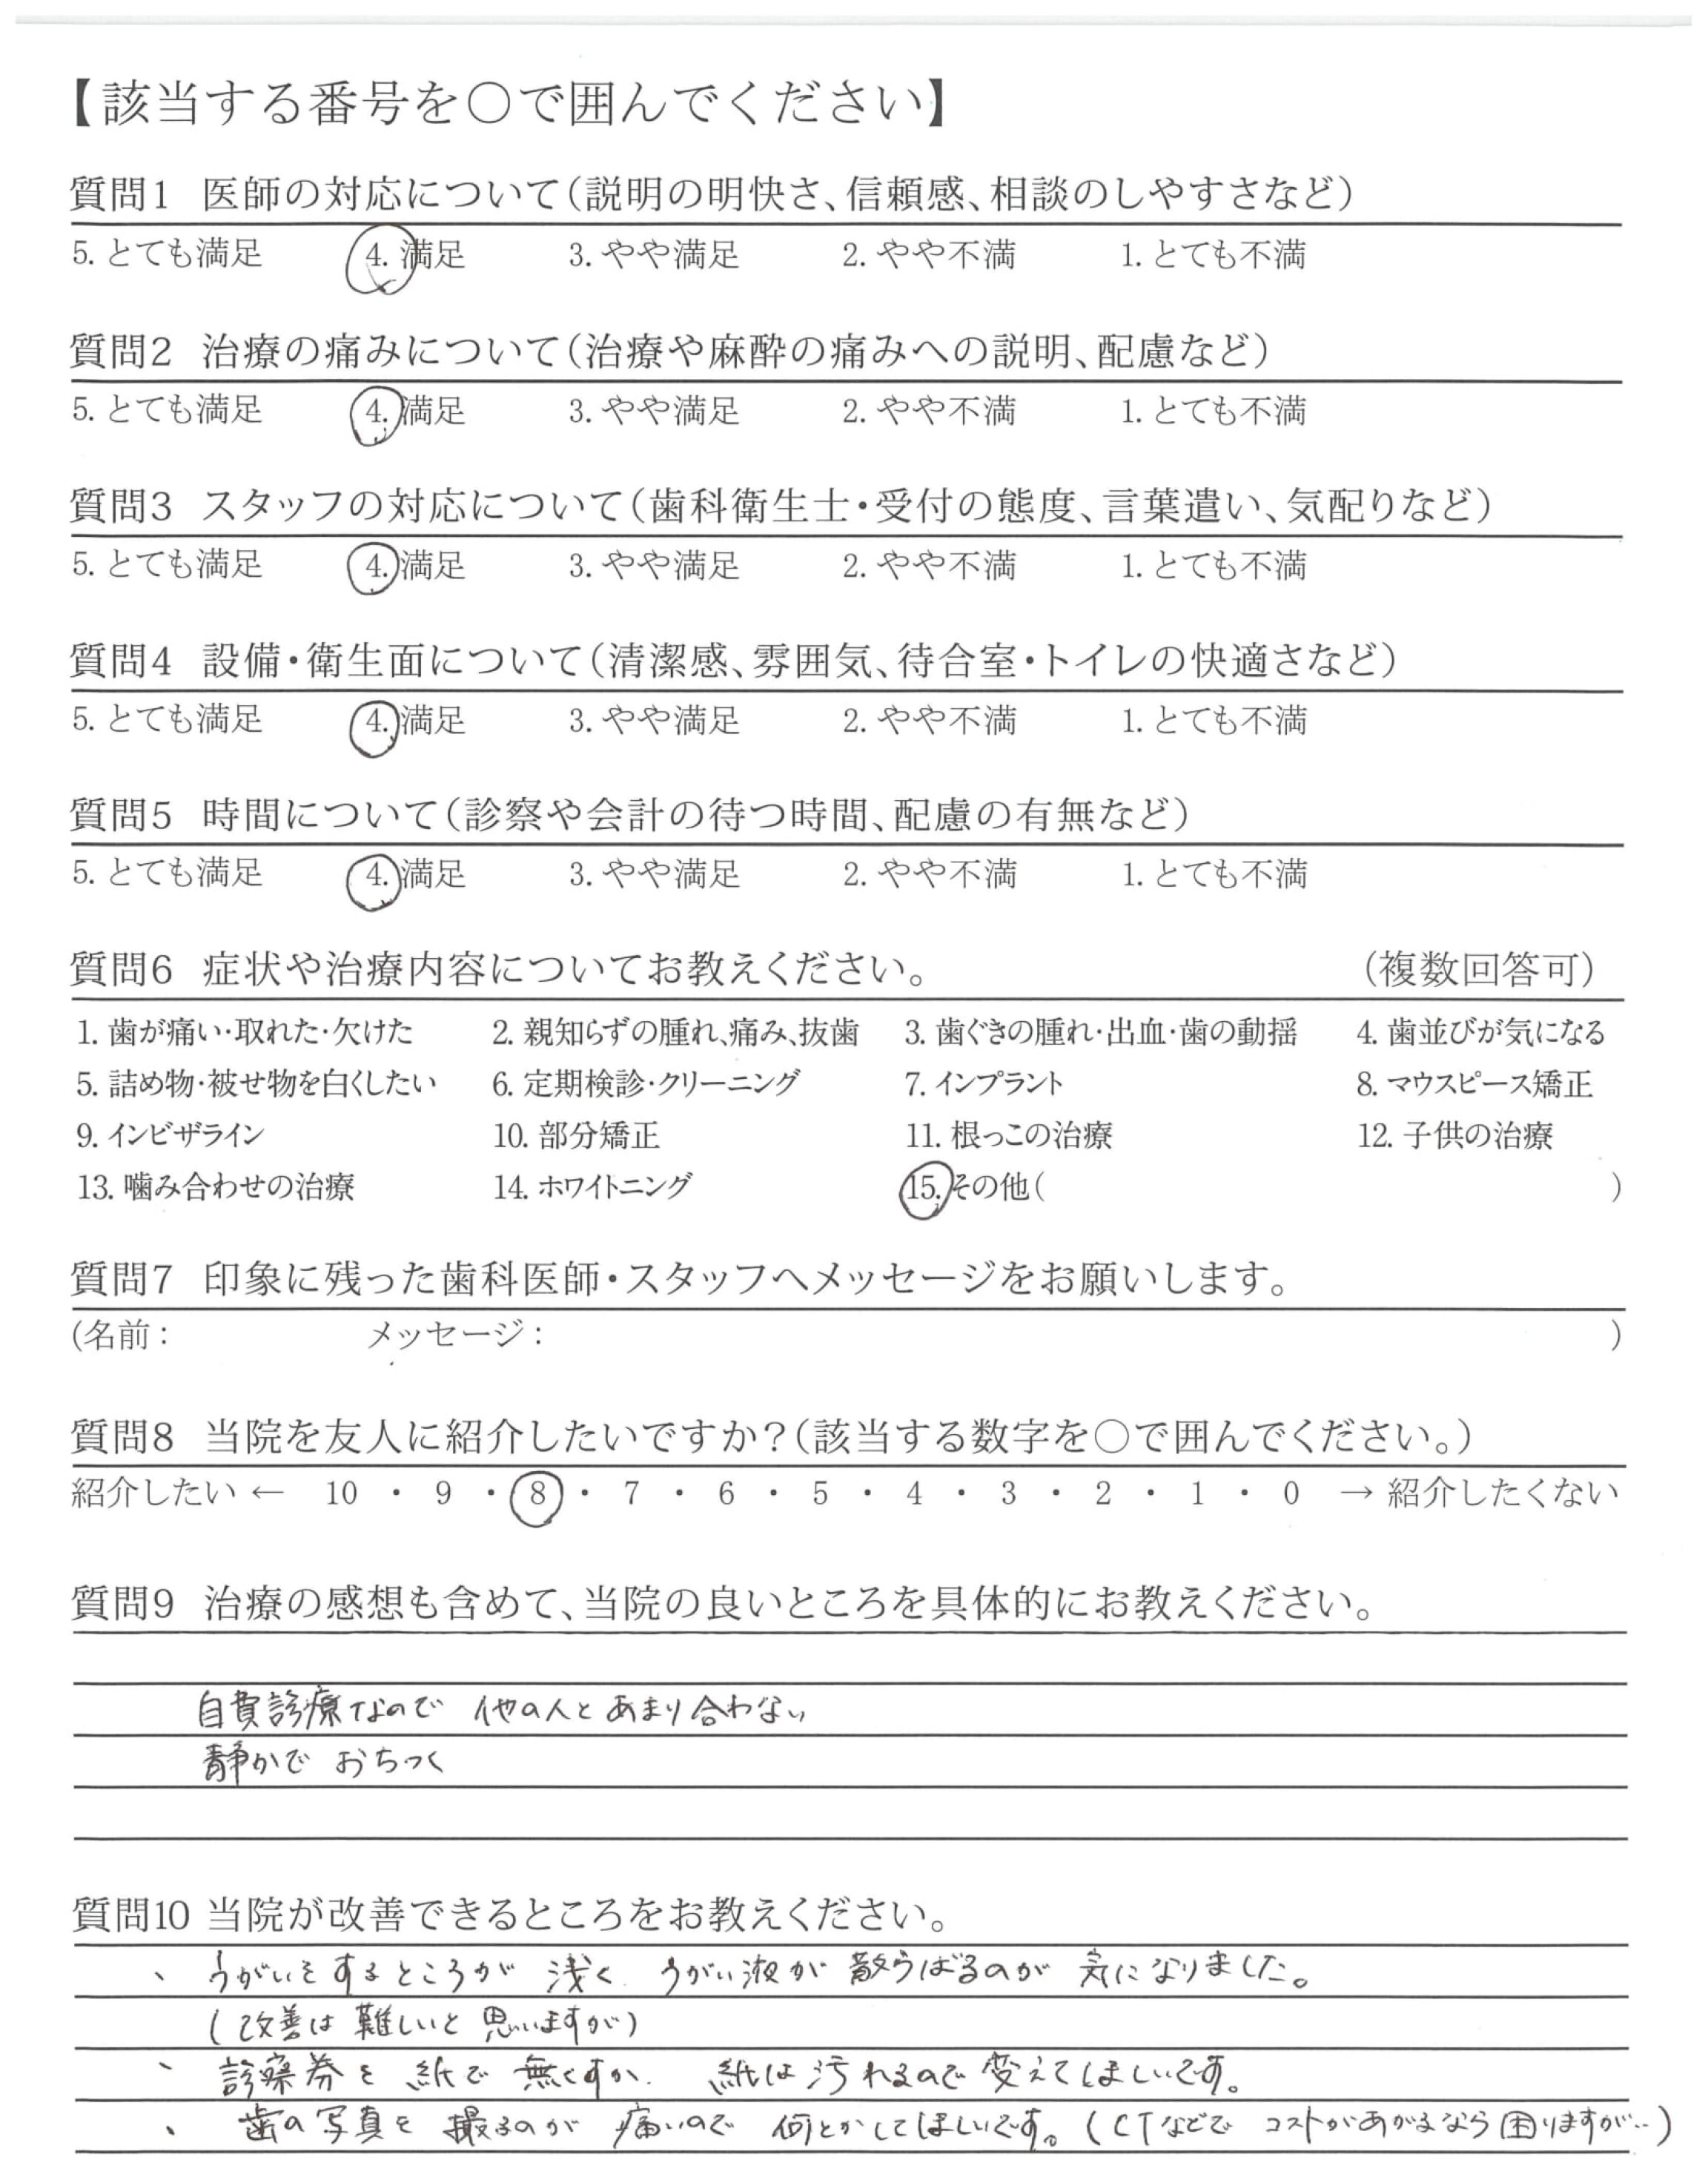 【該当する番号を○で囲んでください】
質問1 医師の対応について(説明の明快さ、信頼感、相談のしやすさなど)
5. とても満足 4. 満足 3. やや満足 2. やや不満 1. とても不満
質問2 治療の痛みについて(治療や麻酔の痛みへの説明、配慮など)
5. とても満足 4. 満足 3. やや満足 2. やや不満 1. とても不満
質問3 スタッフの対応について(歯科衛生士・受付の態度、言葉遣い、気配りなど)
5. とても満足 4. 満足 3. やや満足 2. やや不満 1. とても不満
質問4 設備・衛生面について(清潔感、雰囲気、待合室・トイレの快適さなど)
5. とても満足 4. 満足 3. やや満足 2. やや不満 1. とても不満
質問5 時間について(診察や会計の待つ時間、配慮の有無など)
5. とても満足 4. 満足 3. やや満足 2. やや不満 1. とても不満
質問6 症状や治療内容についてお教えください。 (複数回答可)
1. 歯が痛い・取れた・欠けた 2. 親知らずの腫れ、痛み、抜歯 3. 歯ぐきの腫れ・出血・歯の動揺 4. 歯並びが気になる
5. 詰め物・被せ物を白くしたい 6. 定期検診・クリーニング 7. インプラント 8. マウスピース矯正
9. インビザライン 10. 部分矯正 11. 根っこの治療 12. 子供の治療
13. 噛み合わせの治療 14. ホワイトニング 15. その他( )
質問7 印象に残った歯科医師・スタッフへメッセージをお願いします。
(名前: メッセージ: )
質問8 当院を友人に紹介したいですか?(該当する数字を○で囲んでください。)
紹介したい ← 10 ・ 9 ・ 8 ・ 7 ・ 6 ・ 5 ・ 4 ・ 3 ・ 2 ・ 1 ・ 0 → 紹介したくない
質問9 治療の感想も含めて、当院の良いところを具体的にお教えください。
自費診療なので 他の人と あまり合わない
静かで おちつく
質問10 当院が改善できるところをお教えください。
、 うがいをするところが 浅く うがい液が 散らばるのが 気になりました。
(改善は 難しいと 思いますが)
、 診察券を 紙で 無くすか、 紙は汚れるので 変えてほしいです。
、 歯の写真を 撮るのが 痛いので 何とかしてほしいです。(CTなどで コストがあがるなら 困りますが‥)